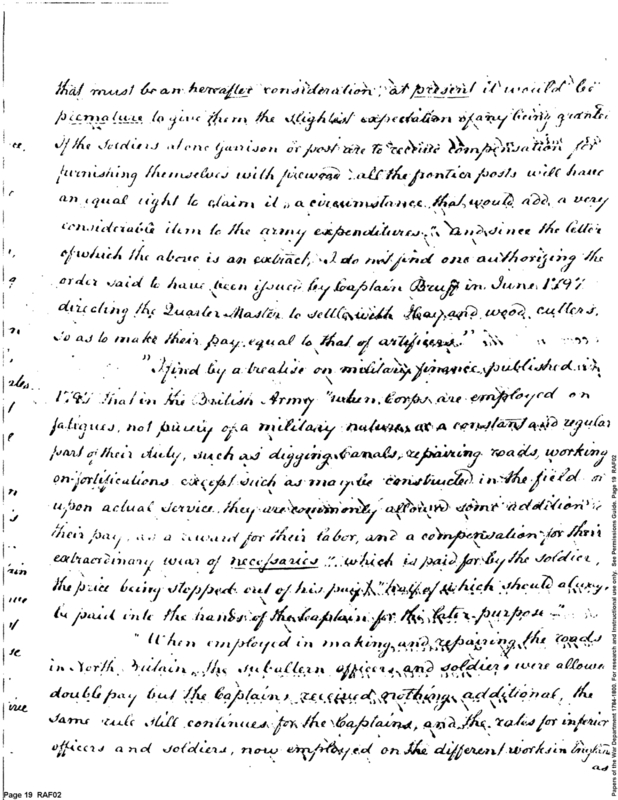 that must be an hereafter consideration, at present it would be
premature to give them the slightest expectation of any being granted
If the soldiers at one Garrison or post are to receive compensation for
furnishing themselves with firewood all the frontier posts will have
an equal right to claim it, a circumstance that would add a very
considerable item to the army expenditures." and since the letter
of which the above is an extract, I do not find one authorizing the
order said to have been issued by Captain Bruff in June 1797
directing the Quarter Master to settle with Hay and wood cutters,
so as to make their pay equal to that of artificers."
"I find by a treatise on military finance, published in
that in the British Army "when Corps are employed on
fatigues, not purely of a military nature or a constant and regular
part of their duty, such as digging Canals, repairing roads, working
on fortifications except such as may be constructed in the field or
upon actual service they are commonly allowed some addition to
their pay, as a reward for their labor, and a compensation for their
extraordinary wear of necessaries" which is paid for by the soldier,
the price being stopped out of his pay, "half of which should always
be paid into the hands of the Captain for the later purpose"
"When employed in making and repairing the roads
in North Britain, the subaltern officers and soldiers were allowed
double pay but the Captains received nothing additional, the
same rule still continues for the Captains, and the rates for inferior
officers and soldiers, now employed on the different works in England
as
Page 19 RAF02
Papers of the War Department 1784-1800. For research and instructional use only. See Permissions Guide. Page 19 RAF02